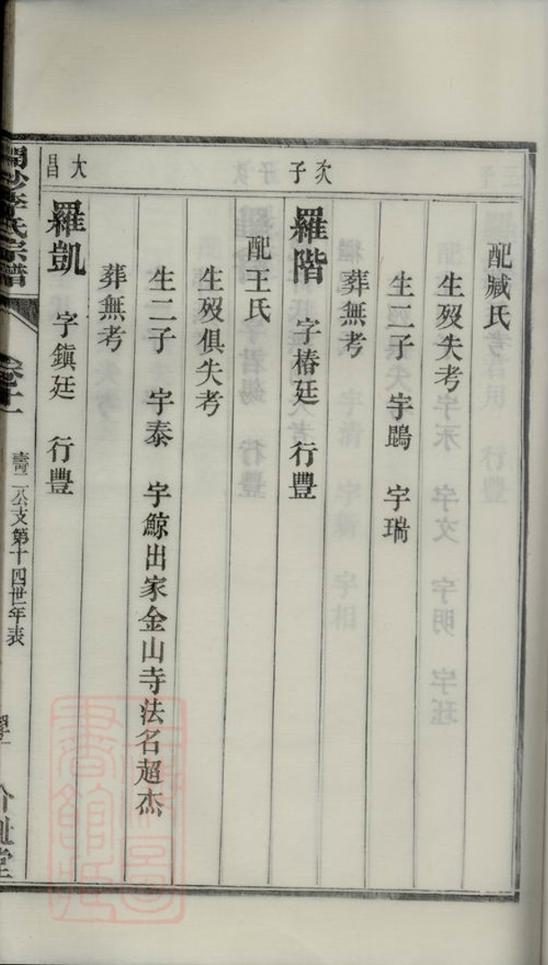 配臧氏
生歿失考
生二子 字鵾 字瑞
葬無考
次子
羅階 字椿廷 行豐
配王氏
生歿俱失考
生二子 字泰 字鯨出家金山寺法名超杰
葬無考
大昌
羅凱 字鎮廷 行豐
開沙李氏宗譜
卷十一
壽二公支第十四世年表